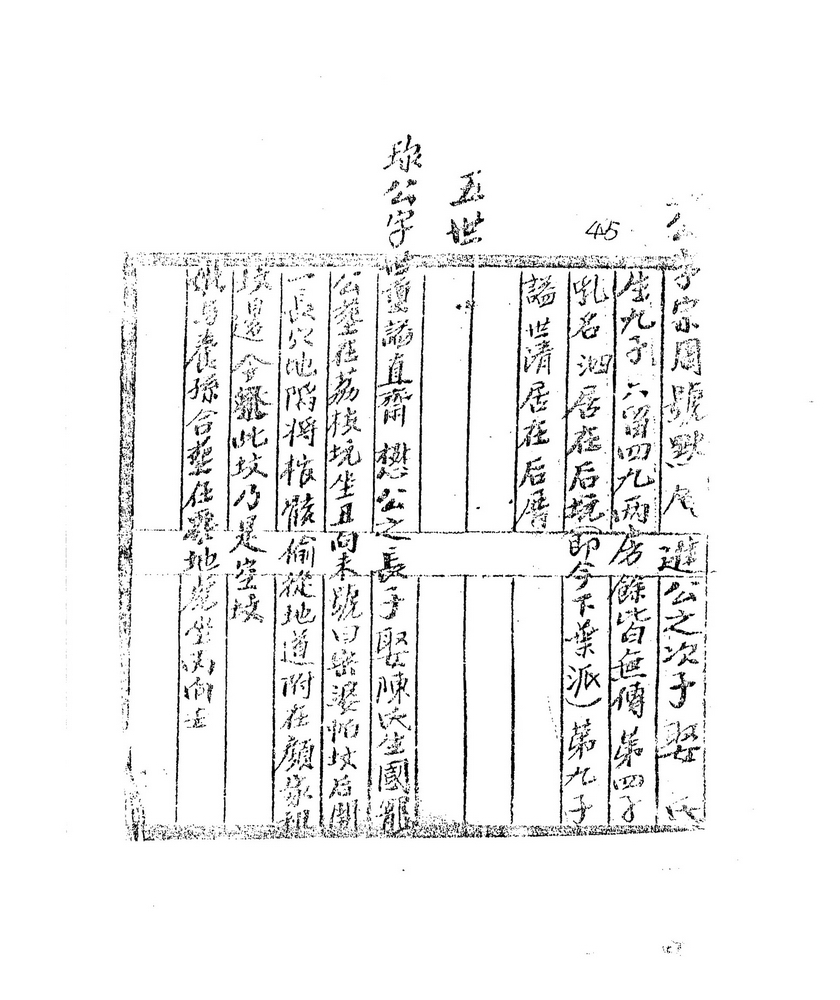 公字宗周號默 進公之次子娶 氏
生九子只留四九兩房餘皆無傳第四子
乳名泗居在后坑(即今下葉派)第九子
45
謚世清居在后厝
五世
珎公字世重謚直齋懋公之長子娶陳氏生國寵
公塟在荔枝坑坐丑向未號曰 婆帕坟后開
一長穴地隔將棺骸偷從地道附在顏家祖
坟邊今 此坟乃是空坟
與養孫合塟在 地 坐 向